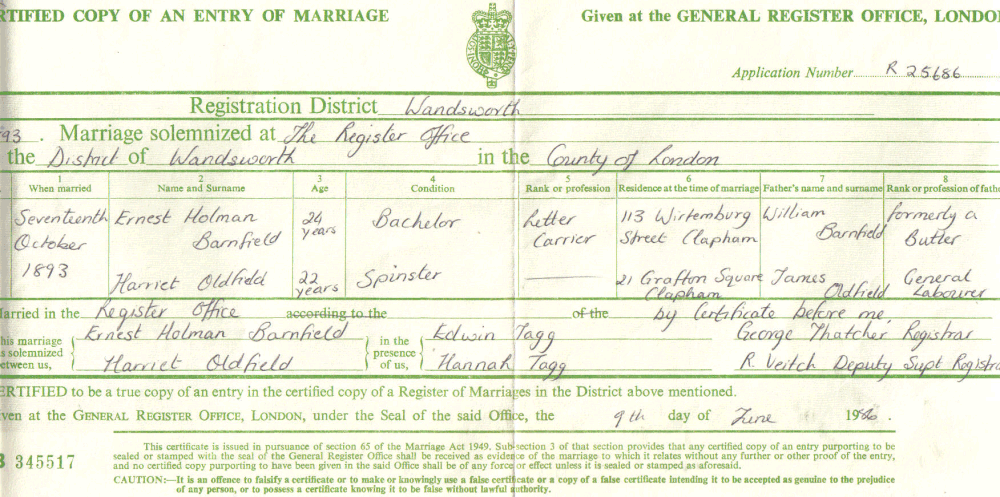 RTIFIED COPY OF AN ENTRY OF MARRIAGE Given at the GENERAL REGISTER OFFICE, LONDON
Application Number R 25686
Registration District Wandsworth
93. Marriage solemnized at The Register Office
the District of Wandsworth in the County of London
1 2 3 4 5 6 7 8
When married Name and Surname Age Condition Rank or profession Residence at the time of marriage Father's name and surname Rank or profession of fathe
Seventeenth Ernest Holman 24 Bachelor Letter 113 Wirtemburg William formerly a
October Barnfield years Carrier Street Clapham Barnfield Butler
1893 Harriet Oldfield 22 Spinster 21 Grafton Square James General
years Clapham Oldfield Labourer
arried in the Register Office according to the of the by Certificate before me,
his marriage Ernest Holman Barnfield in the Edwin Tagg George Thatcher Registrar
s solemnized presence
etween us, Harriet Oldfield of us, Hannah Tagg R. Veitch Deputy Supt Registra
ERTIFIED to be a true copy of an entry in the certified copy of a Register of Marriages in the District above mentioned.
ven at the GENERAL REGISTER OFFICE, LONDON, under the Seal of the said Office, the 9th day of June 19
345517
This certificate is issued in pursuance of section 65 of the Marriage Act 1949. Sub-section 3 of that section provides that any certified copy of an entry purporting to be
sealed or stamped with the seal of the General Register Office shall be received as evidence of the marriage to which it relates without any further or other proof of the entry,
and no certified copy purporting to have been given in the said Office shall be of any force or effect unless it is sealed or stamped as aforesaid.
CAUTION:—It is an offence to falsify a certificate or to make or knowingly use a false certificate or a copy of a false certificate intending it to be accepted as genuine to the prejudice
of any person, or to possess a certificate knowing it to be false without lawful authority.